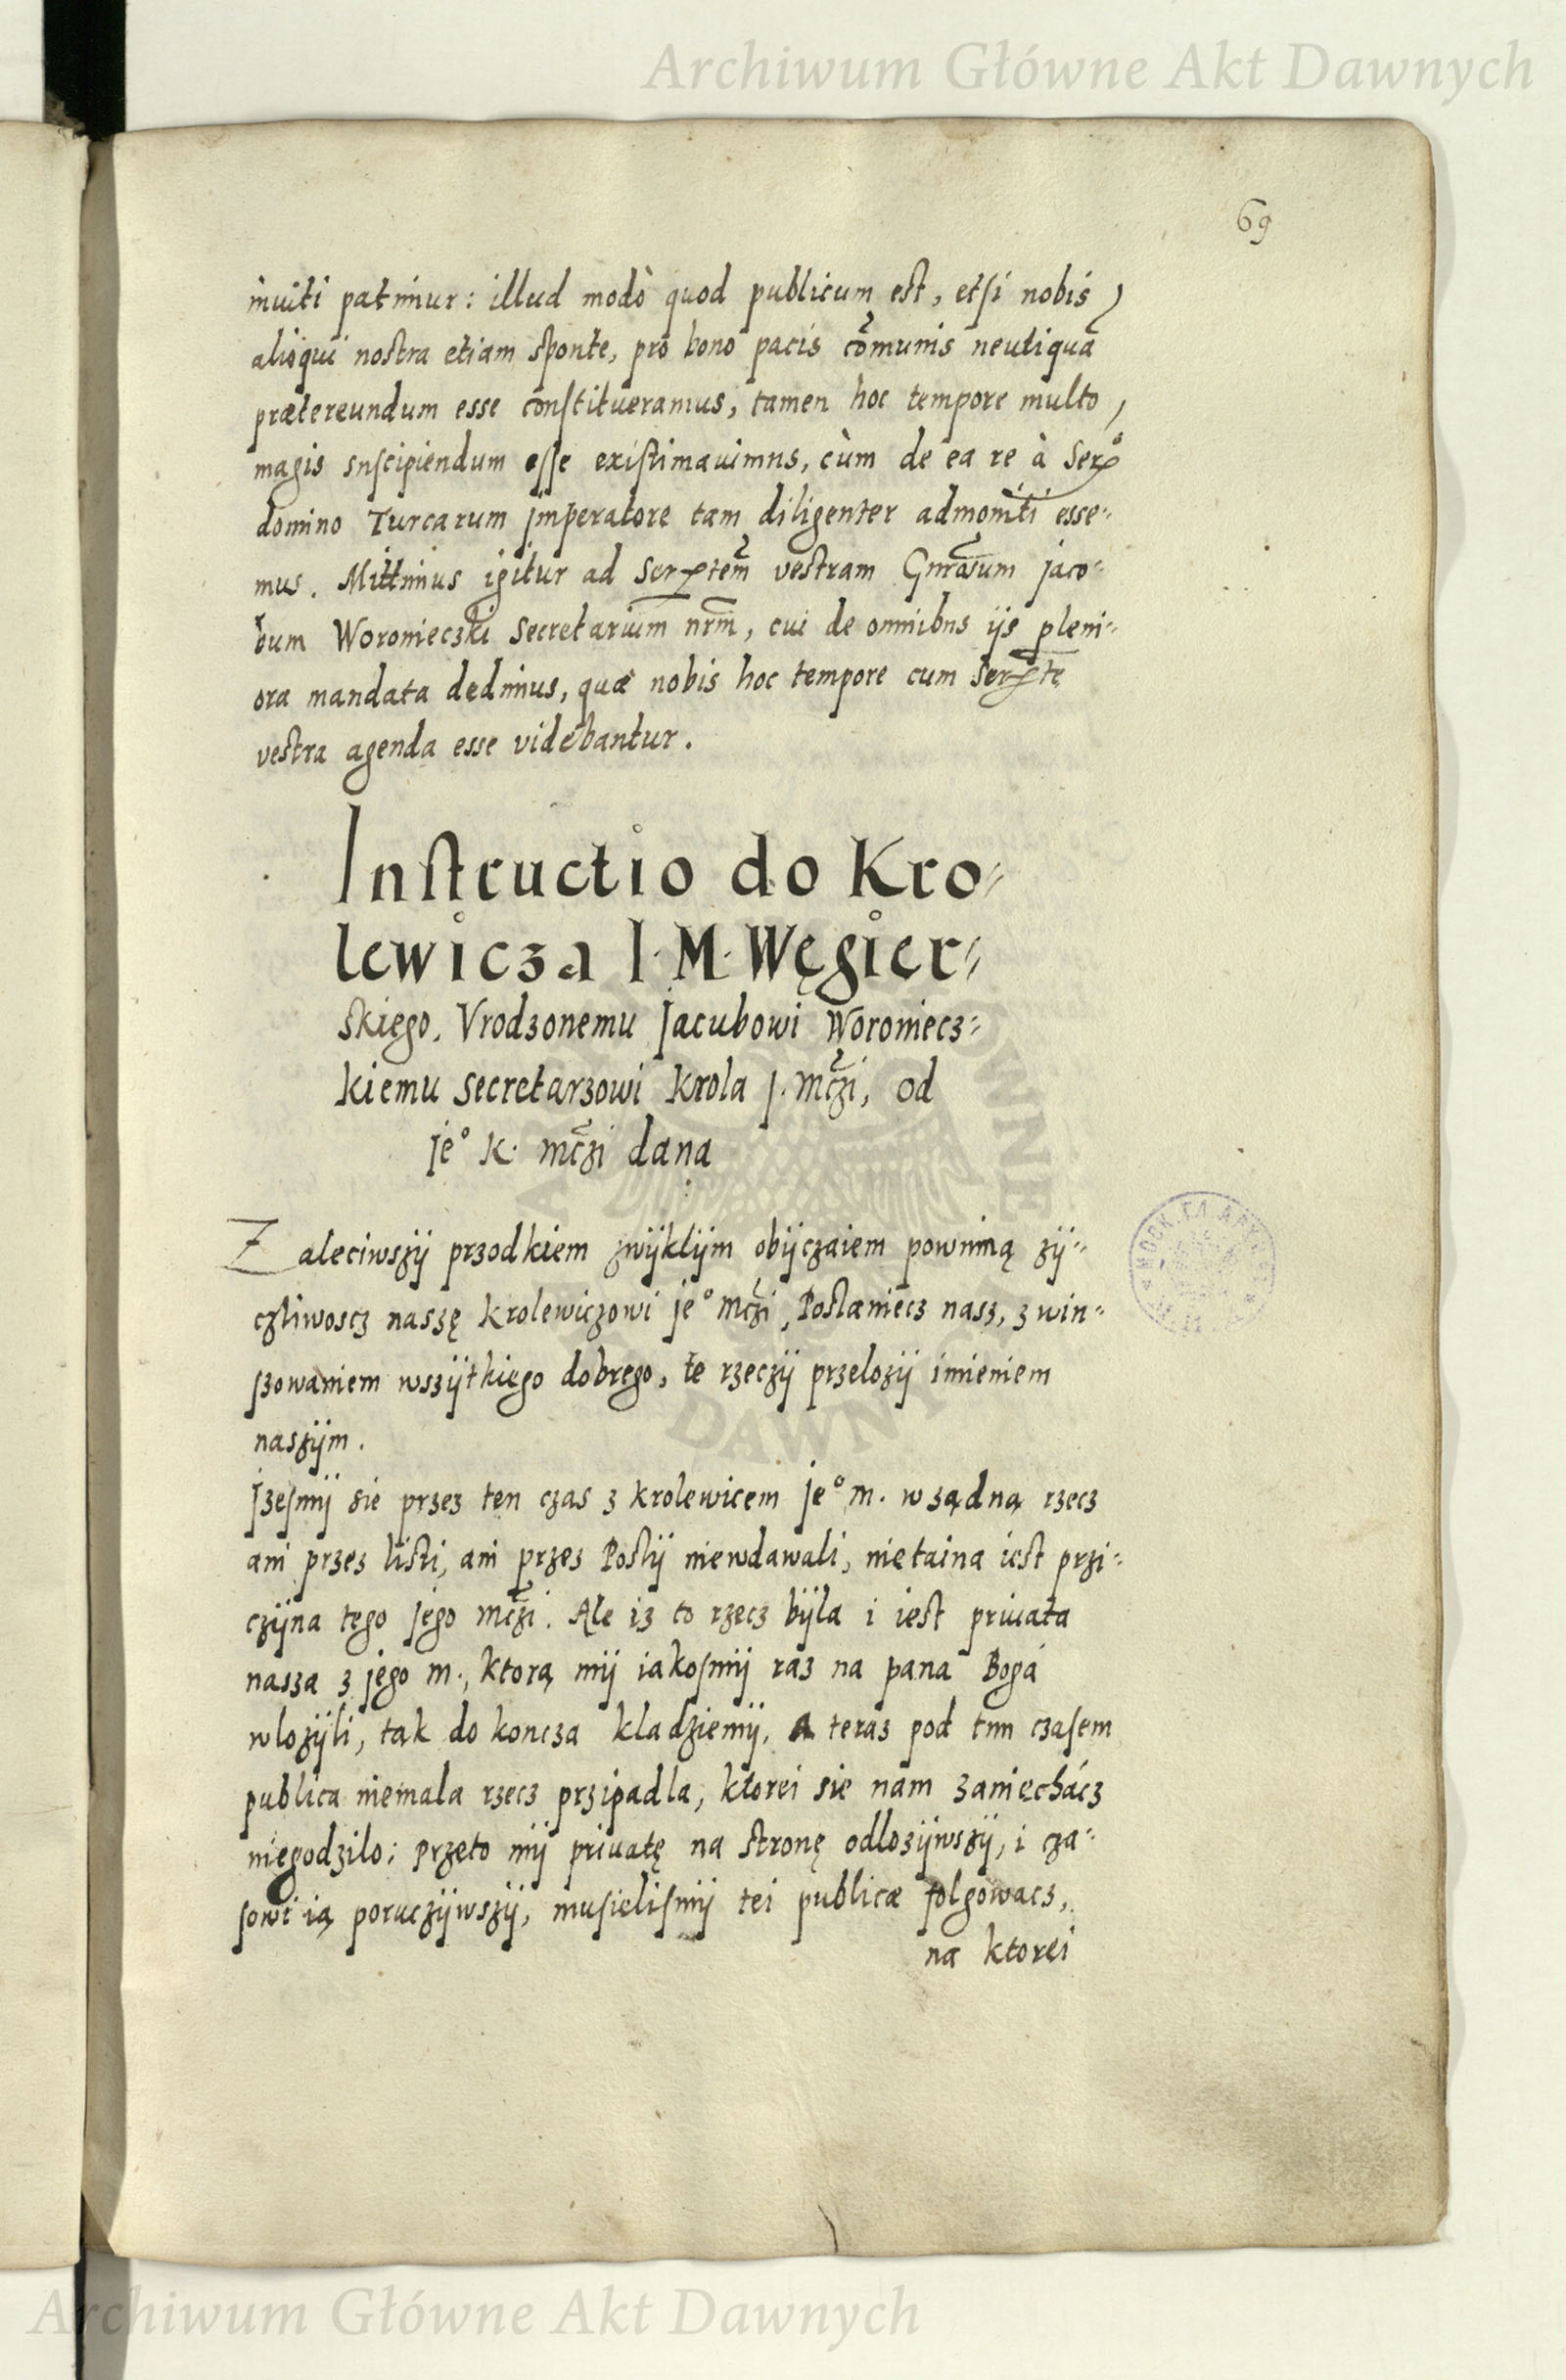 Archiwum Główne Akt Dawnych
69
inuiti patimur: illud modò quod publicum est, etsi nobis
alioqui nostra etiam sponte, pro bono pacis cōmunis neutiquā
prætereundum esse cōnstitueramus, tamen hoc tempore multo,
magis suscipiendum esse existimauimus, cùm de ea re à Ser^o
domino Turcarum jmperatore tam diligenter admoniti esse⸗
mus. Mittimus igitur ad Sertem̄ vestram Gnrōsum jaco⸗
bum Woronieczki Secretarium nrm̄, cui de omnibus ijs pleni⸗
ora mandata dedimus, quæ nobis hoc tempore cum Serte
vestra agenda esse videbantur.
Instructio do Kro⸗
lewicza I. M. Węgier⸗
skiego. Vrodzonemu Jacubowi Woroniecz⸗
kiemu Secretarzowi Krola J. Mczi, od
Je^o K. Mczi dana
Zaleciwszÿ przodkiem zwÿklÿm obÿczaiem powinną zÿ⸗
czliwoscz naszę Krolewiczowi Je^o Mczi, Poslaniecz nasz, z win⸗
szowaniem wszÿtkiego dobrego, te rzeczÿ przelozÿ imieniem
naszÿm.
Jzesmÿ sie przez ten czas z Krolewicem Je^o M. w ządną rzecz
ani przez listi, ani przez Poslÿ niewdawali, nietaina iest przi⸗
czÿna tego Jego Mczi. Ale iz to rzecz bÿla i iest priuata
nasza z Jego M., ktorą mÿ iakosmÿ raz na pana Bogá
wlozÿli, tak do koncza kladziemÿ. A teraz pod tim czasem
publica niemala rzecz przipadla, ktorei sie nam zaniechácz
niegodzilo: przeto mÿ priuatę na stronę odlozÿwszÿ, i cza⸗
sowi ią poruczÿwszÿ, musielismÿ tei publicæ folgowacz,
na ktorei
DAWNYCH
Archiwum Główne Akt Dawnych